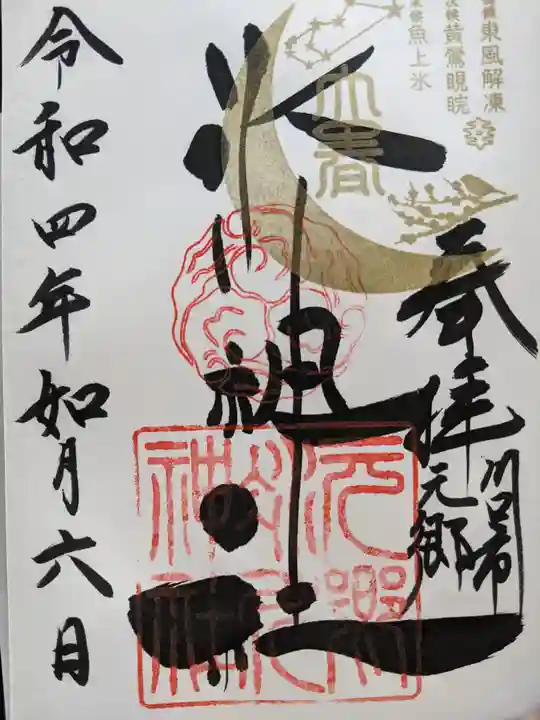 東風解凍
黄鶯睍睆
魚上氷
立春
奉拝
川口市
元郷
氷川神社
元郷
氷川
神社
令和四年如月六日